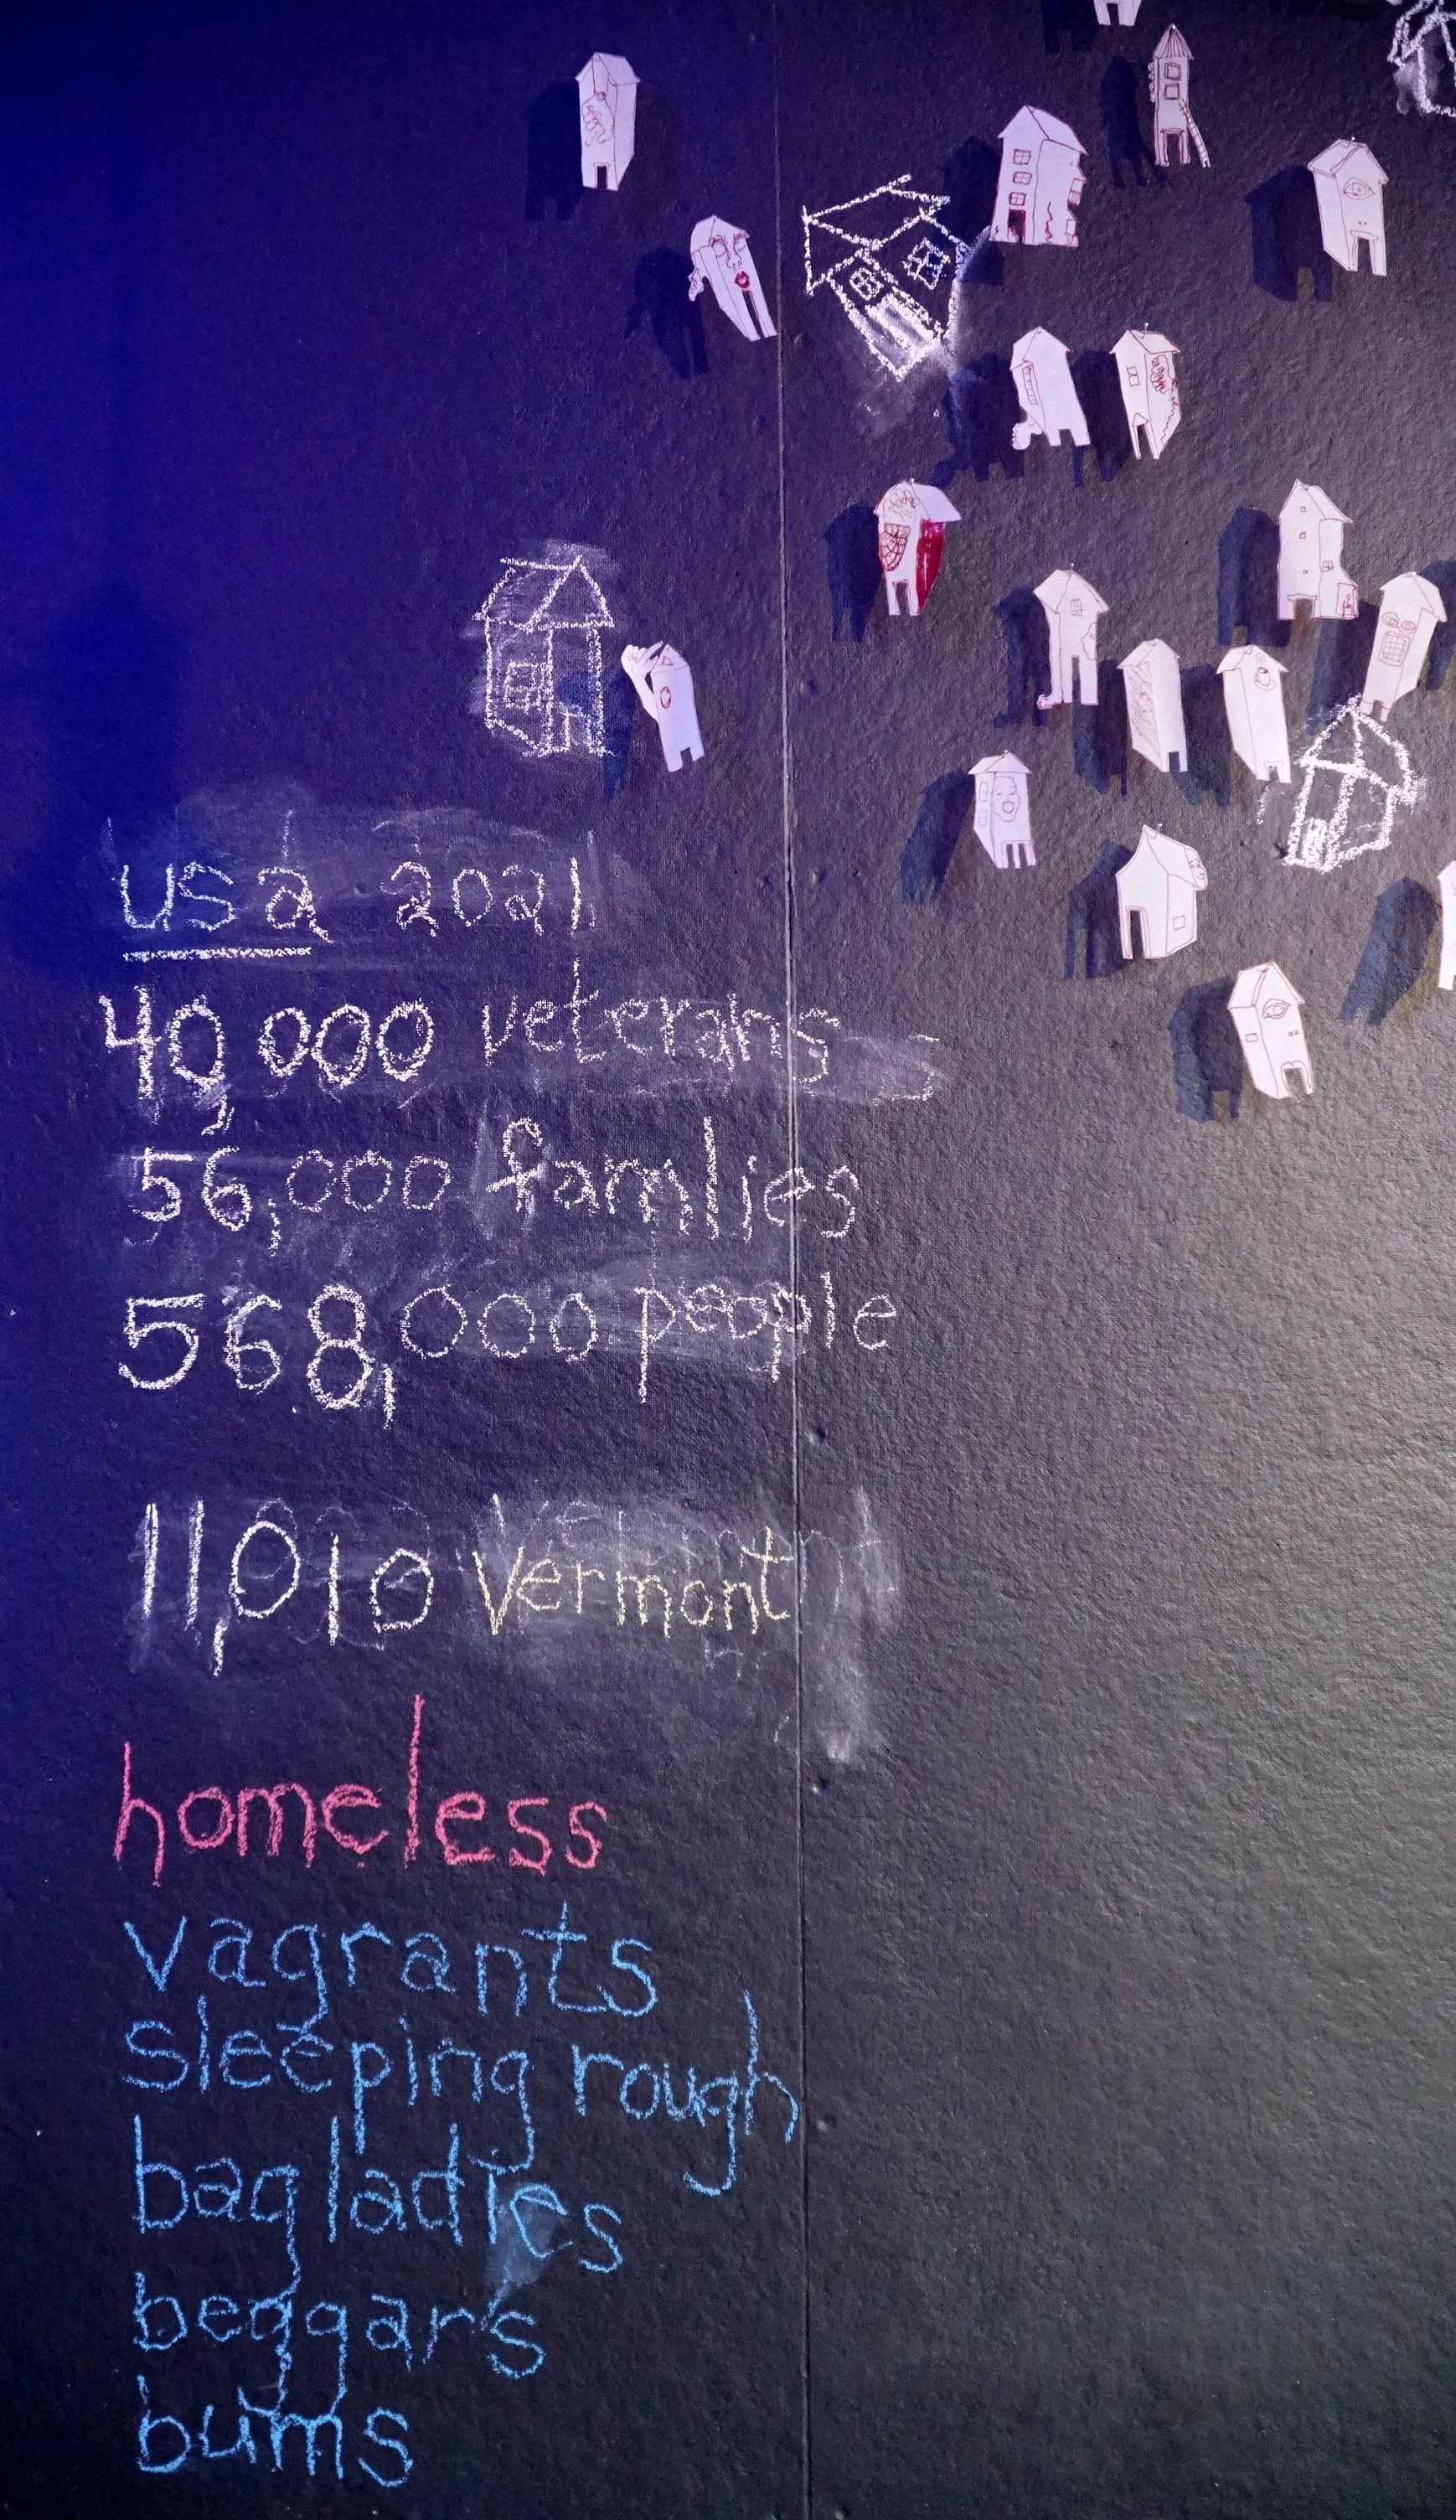 usa 2021
40,000 veterans
56,000 families
568,000 people
11,010 Vermont
homeless
vagrants
sleeping rough
bag ladies
beggars
bums